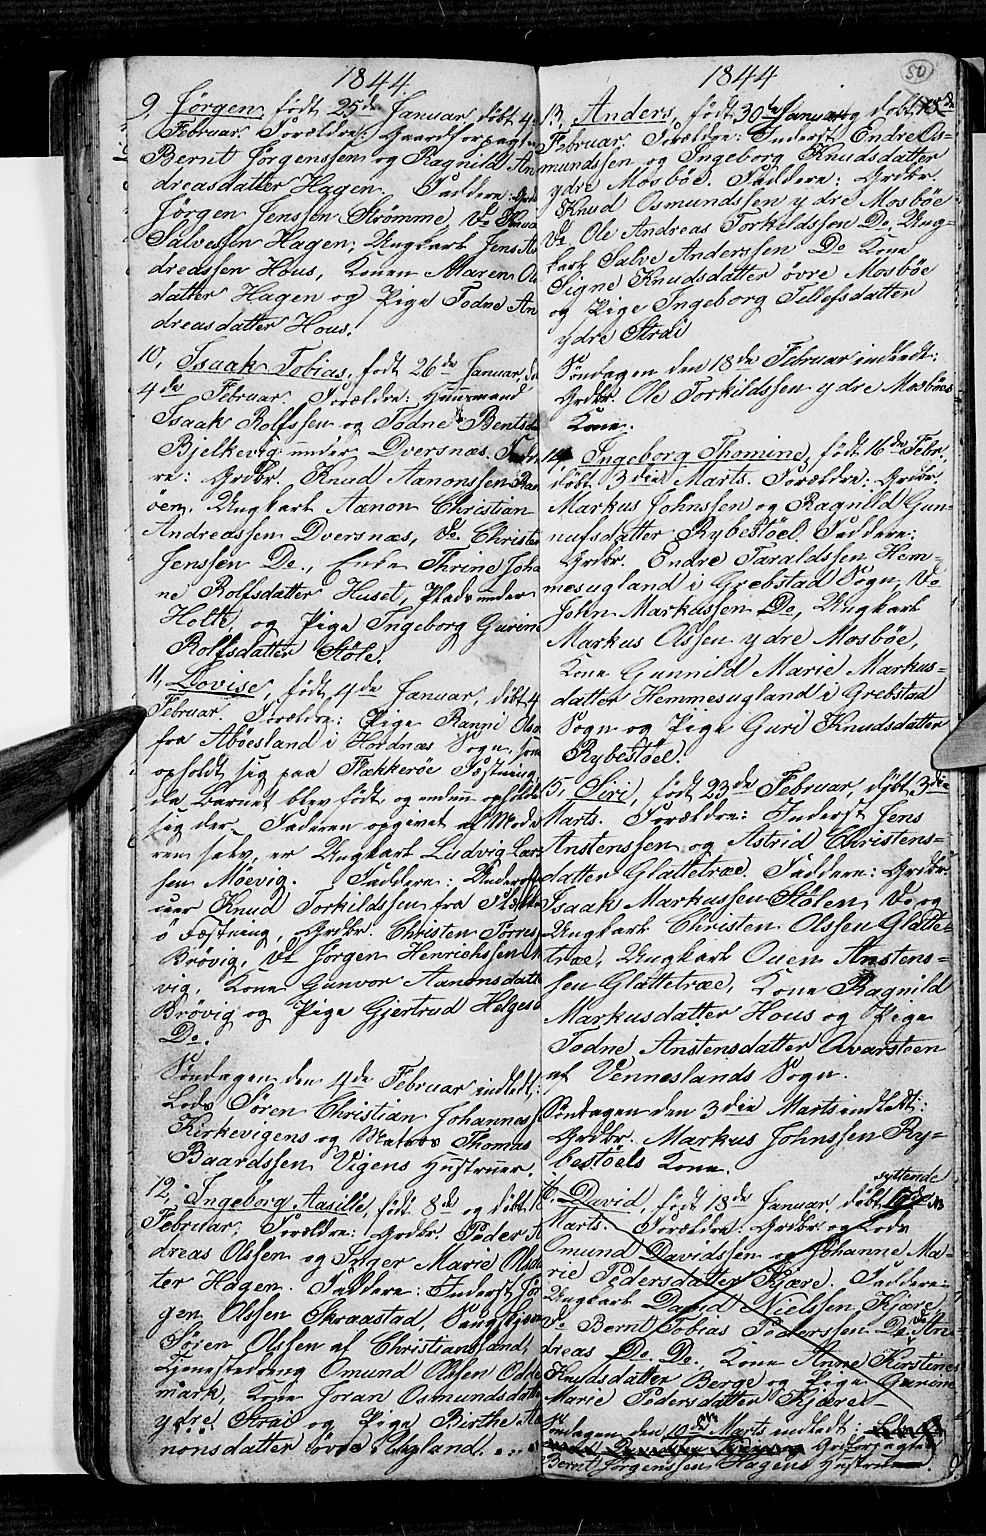 1844.
9, Jørgen, født 25de Januar, døbt 4
Februar. Forældre: Gaardforpagter
Bernt Jørgenssen og Ragnild An
dreasdatter Hagen. Faddere: Grdb
Jørgen Jenssen Strømme, Do Knud
Salvessen Hagen, Ungkarl Jens An
dreassen Hous, Konen Maren Ols
datter Hagen og Pige Todne An
dreasdatter Hous.
10, Isaak Tobias, født 26de Januar, dø
4de Februar. Forældre: Huusmand
Isaak Rolfssen og Todne Bentsda
Bjelkevig under Dversnæs. Fadde
re: Grdbr. Knud Aanonssen Ran
øen, Ungkarl Aanon Christian
Andreassen Dversnæs, Do Christen
Jenssen Do., Enke Thrine Joha
ne Rolfsdatter Huset, Plads under
Holte, og Pige Ingeborg Gurine
Rolfsdatter Støle.
11, Lovise, født 4de Januar, døbt 4
Februar. Forældre: Pige Ranni Olsd
fra Abøesland i Hordnæs Sogn, som
opholdt sig paa Flækkerøe Fæstning,
da Barnet blev født, og endnu opholder
sig der. Faderen opgivet af Mode
ren selv, er Ungkarl Ludvig Lar
sen Møevig. Faddere: Underoffi
ceer Knud Torkildssen fra Flækker
ö Fæstning, Grdbr. Christen Torres
Brøvig, Do Jørgen Henrichssen
vig, Kone Gunvor Aanonsdatt
Brøvig og Pige Gjertrud Helges
Do.
Søndagen den 4de Februar indledt:
Lods Søren Christian Johannes
Kirkevigens og Matros Thomas
Baardssen Vigens Hustruer.
12, Ingeborg Aasille, født 8de og døbt 1
Februar. Forældre: Grdbr. Peder A
dreas Olssen og Inger Marie Olsda
ter Hagen. Faddere: Inderst Jør
gen Olssen Skraastad, Vougskjører
Søren Olssen af Christianssand,
Tjenestedreng Omund Olssen Odde
mark, Kone Joran Osmundsdatter
ydre Strai og Pige Birthe Aa
nonsdatter øvre Ugland.
50
1844
13, Anders, født 30te Januar og døbt
Februar. Forældre: Inderst Endre Os-
mundssen og Ingeborg Knudsdatter
ydre Mosbøe. Faddere: Grdbr.
Knud Osmundssen ydre Mosbøe
Do Ole Andreas Torkildssen Do, Ung-
karl Salve Anderssen Do, Kone
Signe Knudsdatter øvre Mosbøe
og Pige Ingeborg Tellefsdatter
ydre Strai
Søndagen den 18de Februar indledt:
Grdbr. Ole Torkildssen ydre Mosbøes
Kone.
14, Ingeborg Thomine, født 16de Febr,
døbt 3die Marts. Forældre: Grdbr.
Markus Johnssen og Ragnild Gun-
nufsdatter Rybestøel. Faddere:
Grdbr. Endre Taraldssen Hem-
mesugland i Grebstad Sogn, Do
John Markussen Do, Ungkarl
Markus Olssen ydre Mosbøe,
Kone Gunnild Marie Markus-
datter Hemmesugland i Grebstad
Sogn og Pige Guri Knudsdatter
Rybestøel.
15, Siri, født 23de Februar, døbt 3die
Marts. Forældre: Inderst Jens
Anstenssen og Astrid Christens-
datter Glattetræ. Faddere: Grdbr.
Isaak Markussen Stølen, Do og
Ungkarl Christen Olssen Glatte-
træ, Ungkarl Ouen Anstens-
sen Glattetræ, Kone Ragnild
Markusdatter Hous og Pige
Todne Anstensdatter Qvarsteen
af Venneslands Sogn.
Søndagen den 3die Marts indledt:
Grdbr. Markus Johnssen Ry-
bestøels Kone.
syttende
16, David, født 18de Januar, døbt
Marts. Forældre: Grdbr. og Lods
Omund Davidssen og Johanne Ma-
rie Pedersdatter Kjære. Faddere:
Ungkarl David Nielssen Kjære,
Do Bernt Tobias Pederssen Do, Do An-
dreas Do Do, Kone Anne Kirstine
Knudsdatter Berge og Pige Gurine
Marie Pedersdatter Kjære.
Søndagen den 10de Marts indledt:
Grdforpagter
Bernt Jørgenssen Hagens Hustru.